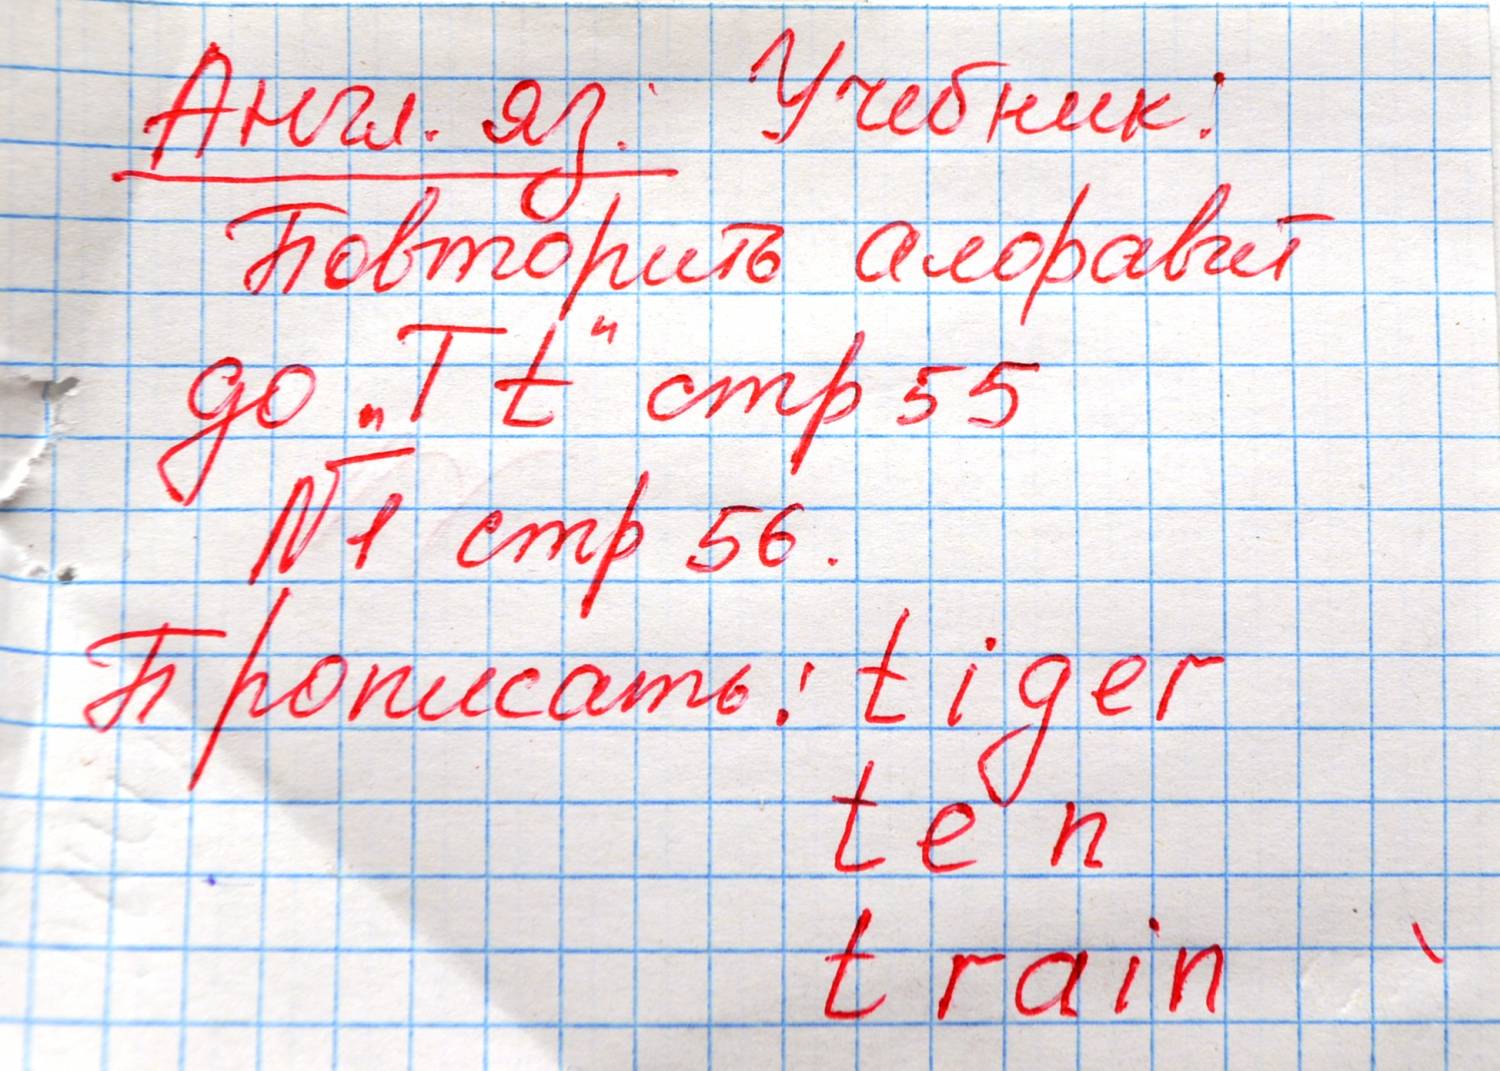 Англ. яз. Учебник:
Повторить алфавит
до „Tt" стр 55
№1 стр 56.
Прописать: tiger
ten
train